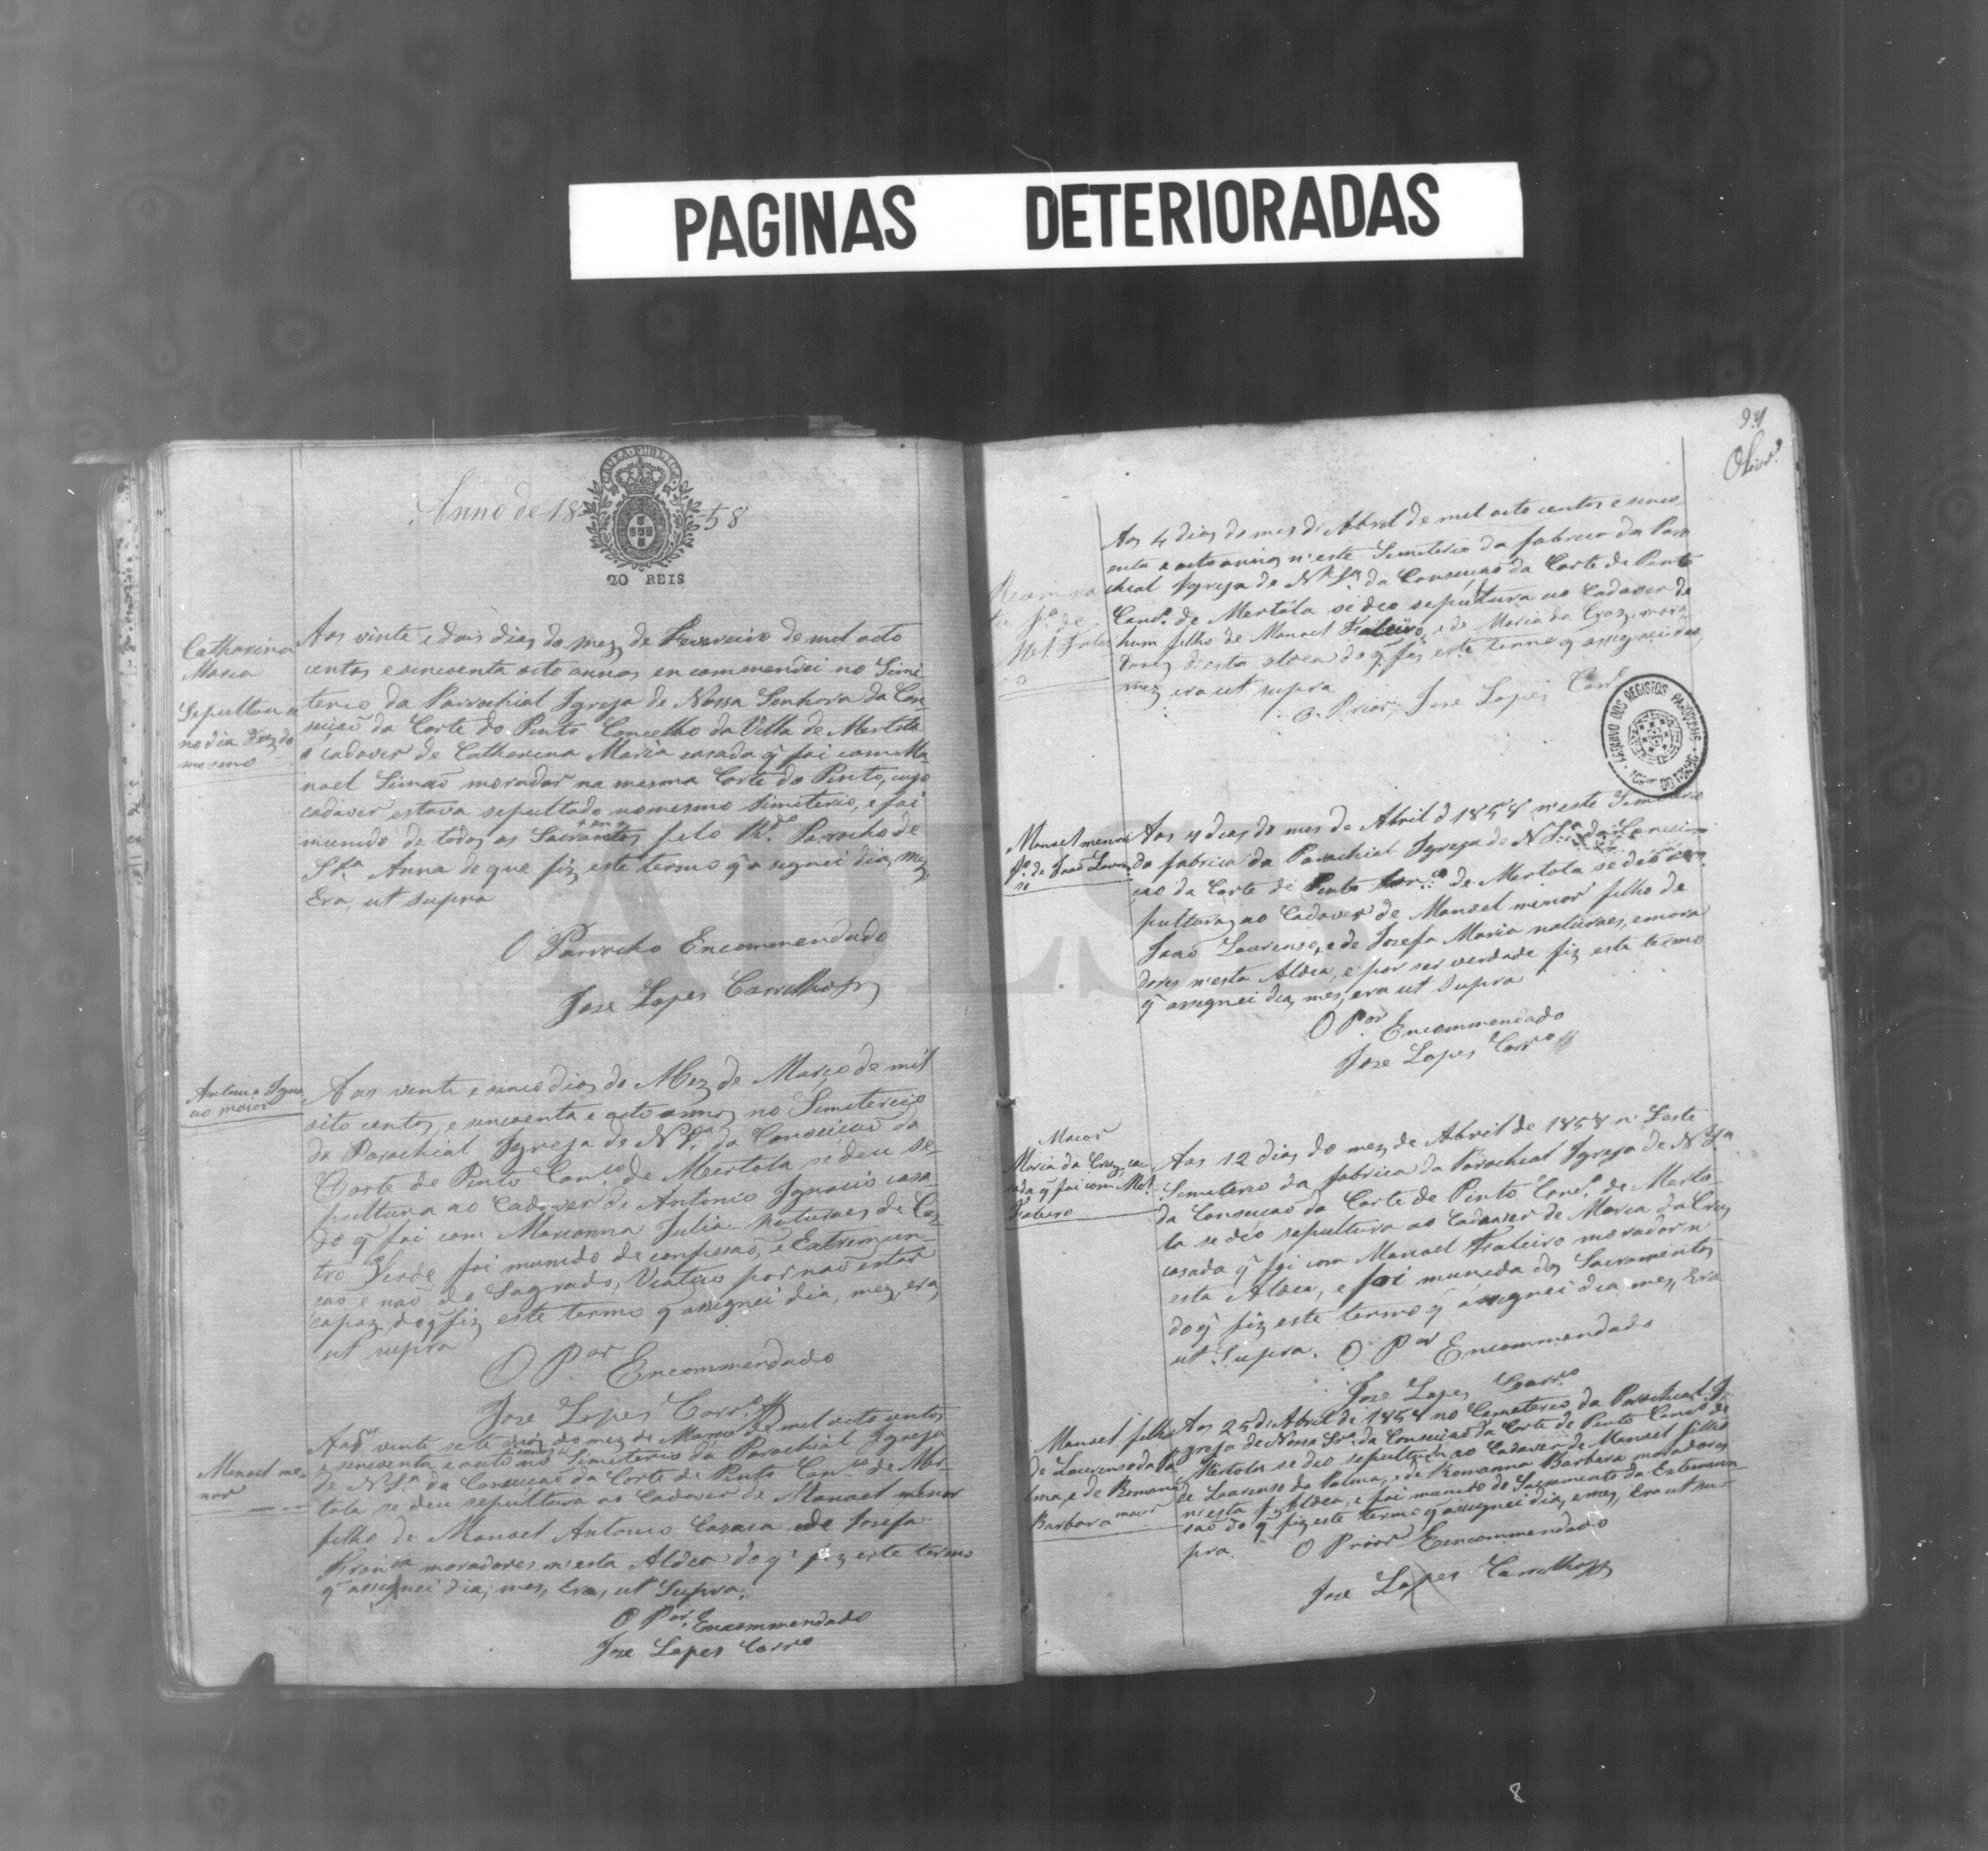 PAGINAS DETERIORADAS
Anno de 18 58
CAUZA PUBLICA
20 REIS
Catharina
Maria
Sepultou
no dia dez do
mesmo
Aos vinte e dois dias do mez de Fevereiro de mil oito
centos e sincoenta oito annos encommendei no Simi-
terio da Parrochial Igreja de Nossa Senhora da Con-
seicão da Corte do Pinto Concelho da Villa de Mertola
o cadaver de Catharina Maria casada q̃ foi com Ma
noel Simaõ morador na mesma Corte do Pinto, cujo
cadaver estava sepultado no mesmo Simiterio, e foi
munido de todos os Sacramentos pelo R.do Parocho de
Sta. Anna de que fiz este termo q̃ asignei dia, mez,
Era, ut supra
O Parrocho Encommendado
Jose Lopes Carvalho
Antonio Igna
cio maior
Aos vente e sinco dias do Mez de Março de mil
oito centos, e sincoenta e oito annos no Simitereio
da Parochial Igreja de N. Sra. da Conseicão da
Corte de Pinto Con.co de Mertola se deu se-
pultura ao Cadaver de Antonio Ignacio casa-
do q̃ foi com Marianna Julia naturaes de Cas-
tro Verde foi munido de confissaõ, e Extremun-
caõ e naõ do Sagrado, Viatico por naõ estar
capaz, do q̃ fiz este termo q̃ assignei dia, mez, era,
ut supra
O P.or Encommendado
Jose Lopes Carr.o
Manoel me-
nor
Aos vente sete dias do mez de Marco de mil oito centos
e sincoenta e outo annos no Simiterio da Parochial Igreja
de N. Sra. da Conseicaõ da Corte de Pinto Con.co de Mer-
tola se deu sepultura ao Cadaver de Manoel menor
filho de Manoel Antonio e de Josefa
moradores n'esta Aldea do q̃ fiz este termo
q̃ assignei dia, mes, Era, ut Supra.
O P.or Encommendado
Jose Lopes Carr.o
94
Oliv.ra
Aos 4 dias do mes de Abril de mil oito centos e sinco
enta e oito annos n'este Simiterio da fabrica da Paro
chial Igreja de N. Sra. da Conseicaõ da Corte de Pinto
Conc.o de Mertola se deo sepultura ao Cadaver de
hum filho de Manoel Faleiro, e de Maria da Cruz, mora
dores d'esta aldea do q̃ fiz este termo q̃ assignei dia,
mez, era ut supra
O Prior, Jose Lopes Carr.o
ARQUIVO DOS REGISTOS PAROQUIAIS
Manoel menor
f.o de Joaõ Loren
so
Aos 4 dias do mes de Abril d 1858 n'este Simiterio
da fabrica da Parochial Igreja de N. Sra. da Concei
cao da Corte de Pinto de Mertola se deo se
pultura, ao Cadaver de Manoel minor filho de
Joaõ Laurenso, e de Josefa Maria naturaes, e mora
dores n'esta Aldea, e por ser verdade fiz este termo
q̃ assignei dia, mes, era ut Supra
O P.or Encommendado
Jose Lopes Carr.o
Maior
Maria da Cruz, ca
sada q̃ foi com Mel.
Faleiro
Aos 12 dias do mez de Abril de 1858 n'este
Simiterio da fabrica da Parochial Igreja de N. Sra.
da Conseicaõ da Corte de Pinto Conc.o de Merto-
la se deo sepultura ao Cadaver de Maria da Cruz,
casada q̃ foi com Manoel Faleiro morador n'
esta Aldea, e foi munida dos Sacramentos
do q̃ fiz este termo q̃ assignei dia, mes, Era
ut Supra. O P.or Encommendado
Jose Lopes Carr.o
Manoel filho
de Laurenso da Pa
lma, e de Romana
Barbara maior
Aos 25 d'Abril de 1858 no Cemeterio, da Parochial I-
greja de Nossa Sra. da Conseicaõ da Corte de Pinto Conc.o de
Mertola se deo sepultura ao Cadaver de Manoel filho
de Laurenso da Palma, e de Romanna Barbara moradores
n'esta Aldea, e foi munido do Sacramento da Extremun
caõ do q̃ fiz este termo q̃ assignei dia, e mez, Era ut su-
pra. O Prior Encommendado
Jose Lopes Carvalho
8